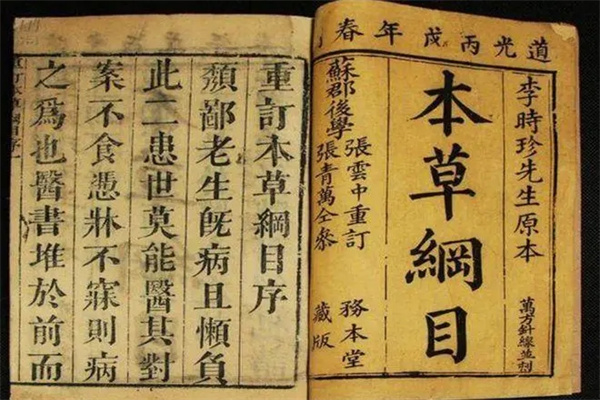 道光丙戌年春
李時珍先生原本
萬方針線並刻
本草綱目
蘇郡後學
張雲中重訂
張青萬仝參
務本堂
藏版
重訂本草綱目序
頽鄙老生旣病且懶負
此二患世莫能醫其對
案不食憑牀不寐則病
之爲也醫書堆於前而
本草綱目序